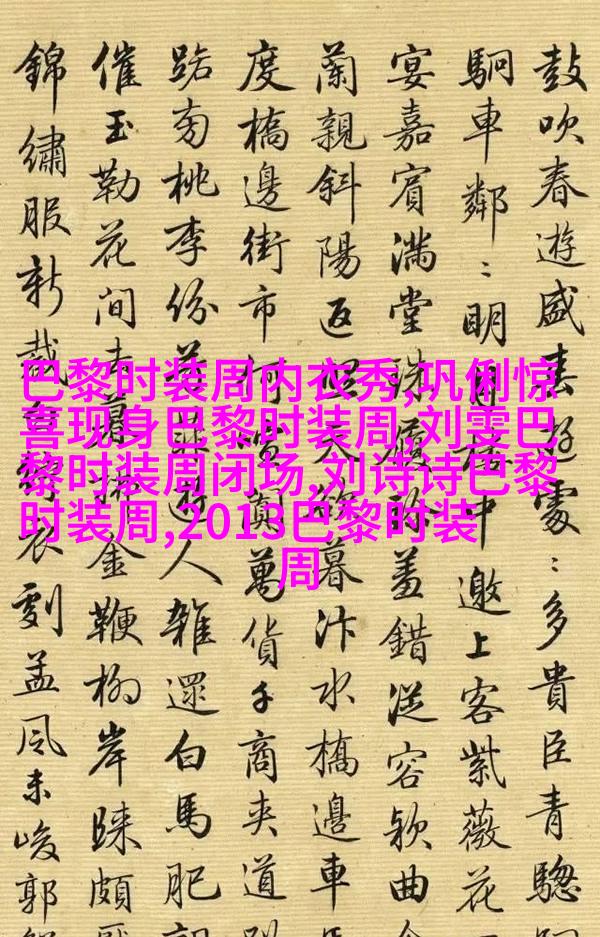 巴黎时装周内衣秀,巩俐惊
喜现身巴黎时装周,刘雯巴
黎时装周闭场,刘诗诗巴黎
时装周,2013巴黎时装
周
鼓吹春遊盛遊處:多貴臣青驄
駉車鄰:明中邀上客紫薇花
宴嘉賓滿堂珠履羞錯從容歌曲
蘭親斜陽返天欲暮汴水橋邊車
度橋邊街市何喧闐萬貨千商夾道
踏南桃李份遊人雜還白馬肥
催玉勒花間金鞭柳岸頗
錦繡服新裁衣孟風未峻郭